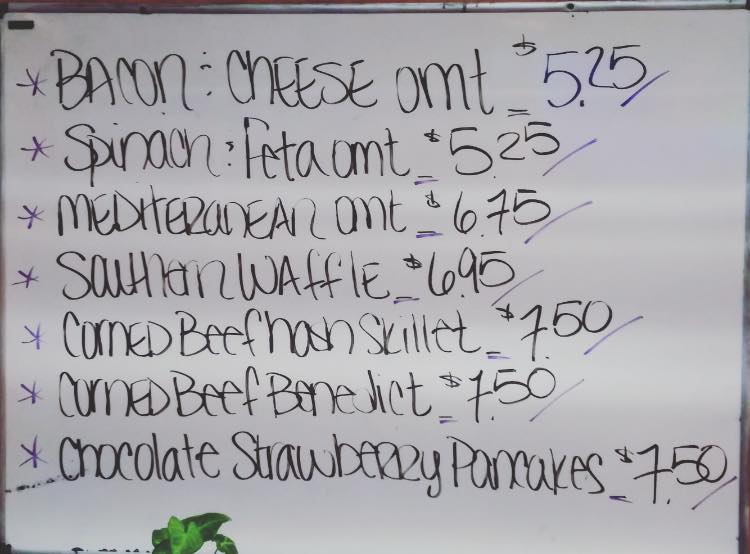 * BACON : CHEESE omt = $5.25
* Spinach : Feta omt = $5.25
* MEDITERANEAN omt = $6.75
* Southern WAffLE = $6.95
* CornED Beef hash Skillet = $7.50
* CornED Beef Benedict = $7.50
* Chocolate Strawberry Pancakes = $7.50